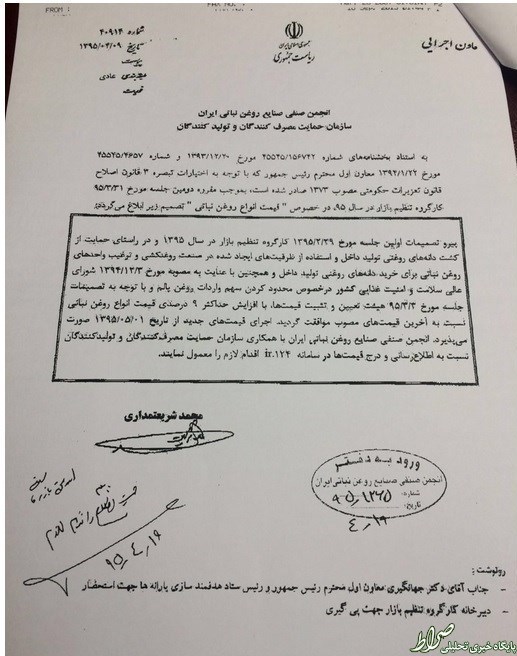 شماره ۴۰۹۱۴
تاریخ ۱۳۹۵/۰۴/۰۹
پیوست
طبقه‌بندی عادی
جمهوری اسلامی ایران
ریاست جمهوری
معاون اجرایی
انجمن صنفی صنایع روغن نباتی ایران
سازمان حمایت مصرف کنندگان و تولید کنندگان
به استناد بخشنامه‌های شماره ۴۵۵۲۵/۱۵۶۷۴۲ مورخ ۱۳۹۳/۱۲/۲۰ و شماره ۴۵۵۲۵/۴۶۵۷
مورخ ۱۳۹۴/۱/۲۲ معاون اول محترم رئیس جمهور که با توجه به اختیارات تبصره ۳ قانون اصلاح
قانون تعزیرات حکومتی مصوب ۱۳۷۳ صادر شده است، بموجب مفروه دومین جلسه مورخ ۹۵/۳/۳۱
کارگروه تنظیم بازار در سال ۹۵، در خصوص " قیمت انواع روغن نباتی " تصمیم زیر ابلاغ می‌گردد:
پیرو تصمیمات اولین جلسه مورخ ۱۳۹۵/۲/۲۹ کارگروه تنظیم بازار در سال ۱۳۹۵ و در راستای حمایت از
کشت دانه‌های روغنی تولید داخل و استفاده از ظرفیت‌های ایجاد شده در صنعت روغنکشی و ترغیب واحدهای
روغن نباتی برای خرید دانه‌های روغنی تولید داخل و همچنین با عنایت به مصوبه مورخ ۱۳۹۴/۱۲/۳ شورای
عالی سلامت و امنیت غذایی کشور درخصوص محدود کردن سهم واردات روغن پالم و با توجه به تصمیمات
جلسه مورخ ۹۵/۳/۳ هیئت تعیین و تثبیت قیمت‌ها، با افزایش حداکثر ۹ درصدی قیمت انواع روغن نباتی
نسبت به آخرین قیمت‌های مصوب موافقت گردید. اجرای قیمت‌های جدید از تاریخ ۱۳۹۵/۰۵/۰۱ صورت
می‌پذیرد. انجمن صنفی صنایع روغن نباتی ایران با همکاری سازمان حمایت مصرف‌کنندگان و تولیدکنندگان
نسبت به اطلاع‌رسانی و درج قیمت‌ها در سامانه ir.۱۲۴ اقدام لازم را معمول نمایند.
محمد شریعتمداری
ورود به دفتر
انجمن صنفی صنایع روغن نباتی ایران
شماره: ۹۵,۱۳۶۵
تاریخ:
۴,۱۹
۹۵,۴,۱۹
رونوشت:
- جناب آقای دکتر جهانگیری معاون اول محترم رئیس جمهور و رئیس ستاد هدفمند سازی یارانه ها جهت استحضار
- دبیرخانه کارگروه تنظیم بازار جهت پی گیری
صراط
پایگاه خبری تحلیلی